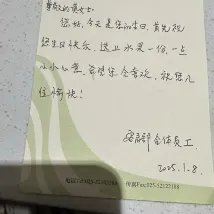 尊敬的吴女士:
您好,今天是您的生日,首先祝
您生日快乐,送上水果一份,一点
小小心意,希望您会喜欢,祝您入
住愉快!
全体员工
2025.1.8
传真Fax:025-52132188